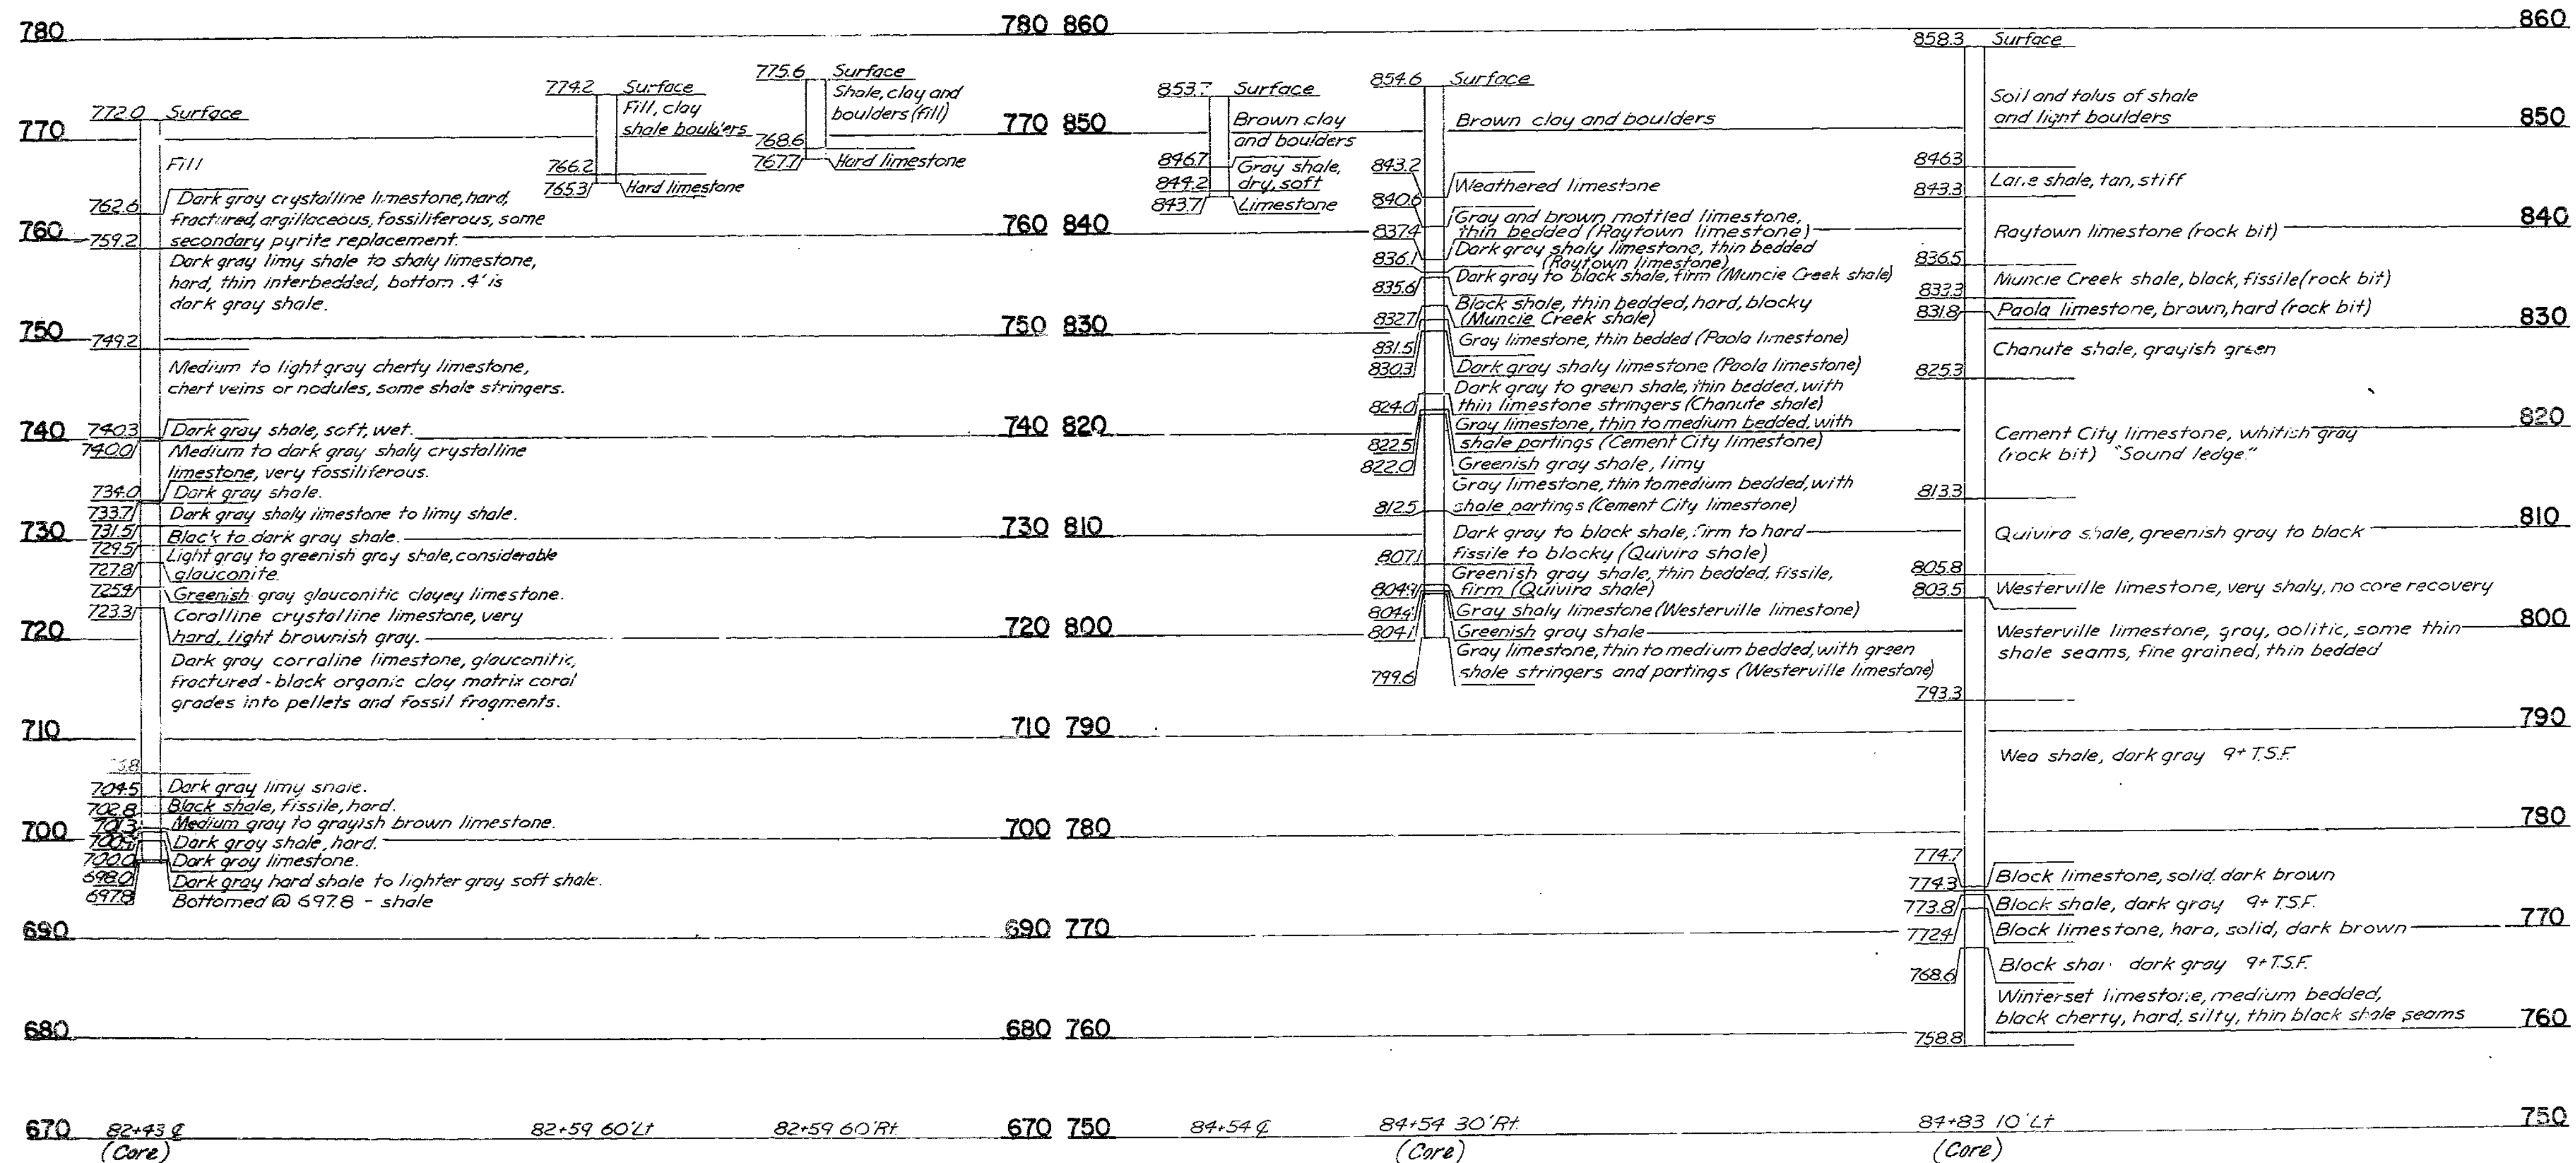 780
780 860
860
772.0 Surface
770
Fill
762.6
Dark gray crystalline limestone, hard,
fractured, argillaceous, fossiliferous, some
secondary pyrite replacement.
760
759.2
Dark gray limy shale to shaly limestone,
hard, thin interbedded, bottom .4' is
dark gray shale.
750
749.2
Medium to light gray cherty limestone,
chert veins or nodules, some shale stringers.
740
740.3 Dark gray shale, soft, wet.
740.0 Medium to dark gray shaly crystalline
limestone, very fossiliferous.
734.0 Dark gray shale.
733.7 Dark gray shaly limestone to limy shale.
731.5
730
Black to dark gray shale.
729.5 Light gray to greenish gray shale, considerable
727.8 glauconite.
725.4 Greenish gray glauconitic clayey limestone.
723.3 Coralline crystalline limestone, very
hard, light brownish gray.
720
Dark gray corraline limestone, glauconitic,
fractured - black organic clay matrix coral
grades into pellets and fossil fragments.
710
704.5 Dark gray limy shale.
702.8 Black shale, fissile, hard.
701.3 Medium gray to grayish brown limestone.
700
Dark gray shale, hard.
700.0 Dark gray limestone.
698.0 Dark gray hard shale to lighter gray soft shale.
697.8 Bottomed @ 697.8 - shale
690
680
670
82+43 ℄
(Core)
774.2 Surface
Fill, clay
shale boulders
766.2
765.3 Hard limestone
82+59 60' Lt
775.6 Surface
Shale, clay and
boulders (fill)
768.6
767.7 Hard limestone
82+59 60' Rt.
770 850
760 840
750 830
740 820
730 810
720 800
710 790
700 780
690 770
680 760
670 750
853.7 Surface
Brown clay
and boulders
846.7 Gray shale,
844.2 dry, soft
843.7 Limestone
84+54 ℄
854.6 Surface
Brown clay and boulders
843.2
Weathered limestone
840.6
Gray and brown mottled limestone,
837.4 thin bedded (Raytown limestone)
Dark gray shaly limestone, thin bedded
836.1 (Raytown limestone)
Dark gray to black shale, firm (Muncie Creek shale)
835.6
Black shale, thin bedded, hard, blocky
832.7 (Muncie Creek shale)
831.5 Gray limestone, thin bedded (Paola limestone)
830.3 Dark gray shaly limestone (Paola limestone)
Dark gray to green shale, thin bedded, with
824.0 thin limestone stringers (Chanute shale)
Gray limestone, thin to medium bedded, with
822.5 shale partings (Cement City limestone)
822.0 Greenish gray shale, limy
Gray limestone, thin to medium bedded, with
812.5 shale partings (Cement City limestone)
Dark gray to black shale, firm to hard
807.1 fissile to blocky (Quivira shale)
Greenish gray shale, thin bedded, fissile,
804.9 firm (Quivira shale)
804.4 Gray shaly limestone (Westerville limestone)
804.1 Greenish gray shale
Gray limestone, thin to medium bedded, with green
799.6 shale stringers and partings (Westerville limestone)
84+54 30' Rt.
(Core)
858.3 Surface
Soil and talus of shale
and light boulders
850
846.3
Lane shale, tan, stiff
843.3
840
Raytown limestone (rock bit)
836.5
Muncie Creek shale, black, fissile (rock bit)
833.3
831.8 Paola limestone, brown, hard (rock bit)
830
Chanute shale, grayish green
825.3
820
Cement City limestone, whitish gray
(rock bit) "Sound ledge."
813.3
810
Quivira shale, greenish gray to black
805.8
803.5 Westerville limestone, very shaly, no core recovery
800
Westerville limestone, gray, oolitic, some thin
shale seams, fine grained, thin bedded
793.3
790
Wea shale, dark gray 9+ T.S.F.
780
774.7
Block limestone, solid, dark brown
774.3
773.8 Block shale, dark gray 9+ T.S.F.
770
772.4 Block limestone, hard, solid, dark brown
768.6 Block dark gray 9+ T.S.F.
Winterset limestone, medium bedded,
black cherty, hard, silty, thin black shale seams
760
758.8
750
84+83 10' Lt
(Core)